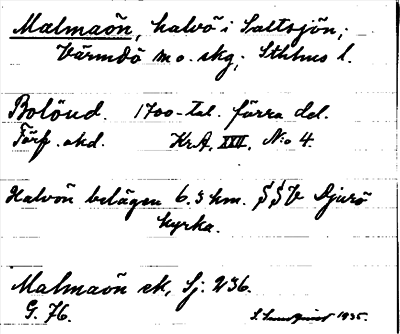 Malmaön, halvö i Saltsjön;
Värmdö m o. skg; Sthlms l.
Bolönd. 1700-tal. förra del.
Förf. okd. Kr.A. XXII. N:o 4.
Halvön belägen 6.5 km. SSV Djurö
kyrka.
Malmaön ek, Sj: 236.
G. 76.
S. Lundquist 1935.